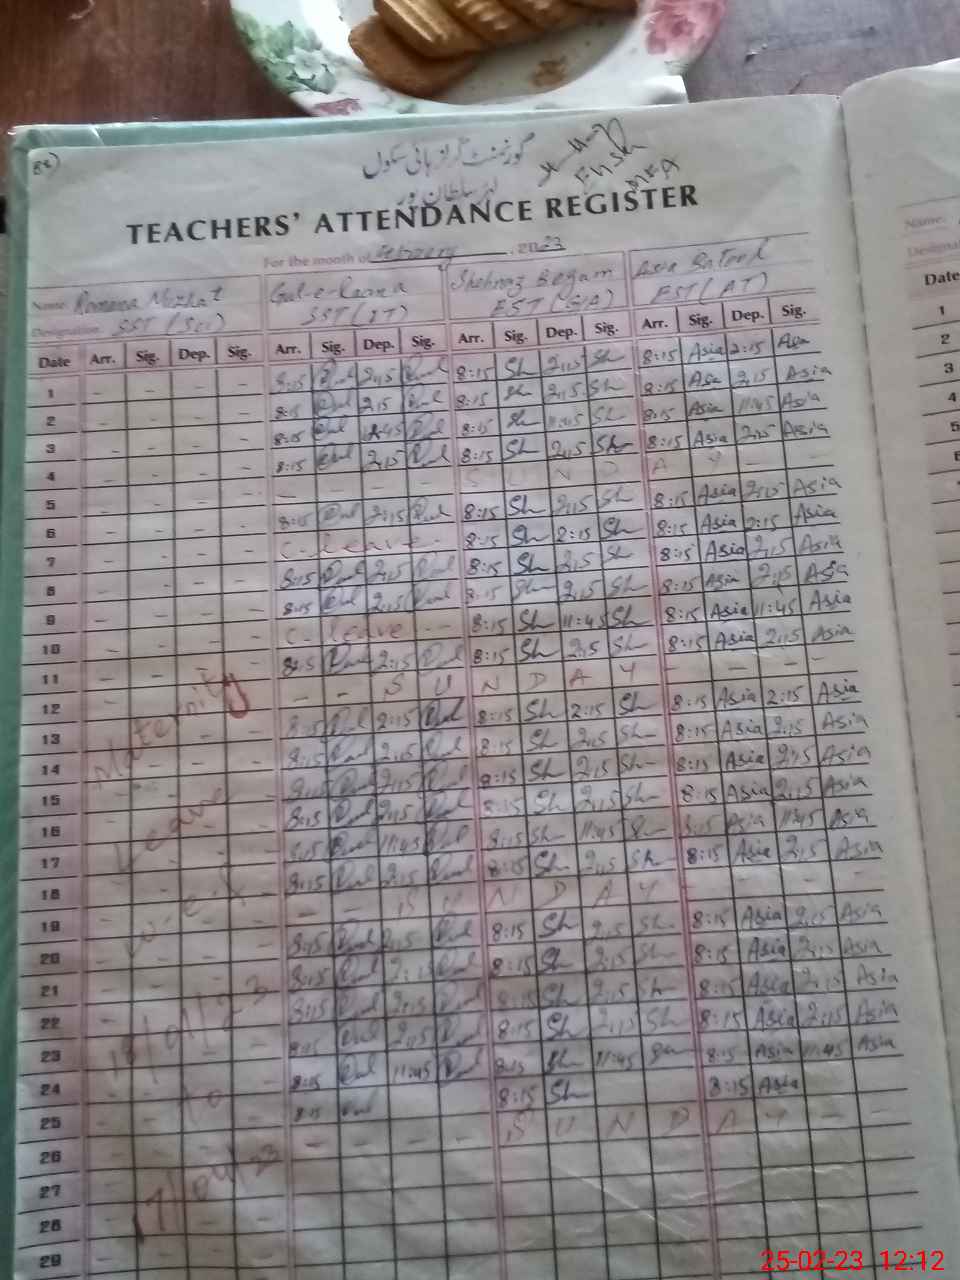 گورنمنٹ گرلز ہائی سکول
سلطان پور
TEACHERS' ATTENDANCE REGISTER
For the month of February, 2023
Name: Romana Nuzhat Gul-e-Raana Shehnaz Begam Asia Batool
Designation SST (Sci) SST (IT) EST (AT)
Date Arr. Sig. Dep. Sig. Arr. Sig. Dep. Sig. Arr. Sig. Dep. Sig. Arr. Sig. Dep. Sig.
1 - - - - 8:15 2:15 8:15 Sh 2:15 Sh 8:15 Asia 2:15 Asia
2 - - - - 8:15 2:15 8:15 Sh 2:15 Sh 8:15 Asia 2:15 Asia
3 - - - - 8:15 11:45 8:15 Sh 11:45 Sh 8:15 Asia 11:45 Asia
4 - - - - 8:15 2:15 8:15 Sh 2:15 Sh 8:15 Asia 2:15 Asia
5 - - - - - - - - S U N D A Y - -
6 - - - - 8:15 2:15 8:15 Sh 2:15 Sh 8:15 Asia 2:15 Asia
7 - - - - C. leave - 8:15 Sh 2:15 Sh 8:15 Asia 2:15 Asia
8 - - - - 8:15 2:15 8:15 Sh 2:15 Sh 8:15 Asia 2:15 Asia
9 - - - - 8:15 2:15 8:15 Sh 2:15 Sh 8:15 Asia 2:15 Asia
10 - - - - C. leave - - 8:15 Sh 11:45 Sh 8:15 Asia 11:45 Asia
11 - - - - 8:15 2:15 8:15 Sh 2:15 Sh 8:15 Asia 2:15 Asia
12 - - - - - - S U N D A Y - - - -
13 - - - - 8:15 2:15 8:15 Sh 2:15 Sh 8:15 Asia 2:15 Asia
14 - - - - 8:15 2:15 8:15 Sh 2:15 Sh 8:15 Asia 2:15 Asia
15 - - - - 8:15 2:15 8:15 Sh 2:15 Sh 8:15 Asia 2:15 Asia
16 - - - - 8:15 2:15 8:15 Sh 2:15 Sh 8:15 Asia 2:15 Asia
17 - - - - 8:15 11:45 8:15 Sh 11:45 Sh 8:15 Asia 11:45 Asia
18 - - - - 8:15 2:15 8:15 Sh 2:15 Sh 8:15 Asia 2:15 Asia
19 - - - - - - S U N D A Y - - - -
20 - - - - 8:15 2:15 8:15 Sh 2:15 Sh 8:15 Asia 2:15 Asia
21 - - - - 8:15 2:15 8:15 Sh 2:15 Sh 8:15 Asia 2:15 Asia
22 - - - - 8:15 2:15 8:15 Sh 2:15 Sh 8:15 Asia 2:15 Asia
23 - - - - 8:15 2:15 8:15 Sh 2:15 Sh 8:15 Asia 2:15 Asia
24 - - - - 8:15 11:45 8:15 Sh 11:45 Sh 8:15 Asia 11:45 Asia
25 - - - - 8:15 8:15 Sh 8:15 Asia
26 - - - - - - - - S U N D A Y - - -
27
28
29
Maternity
Leave
w.e.f
18/01/23
to
17/04/23
Name:
Date
1
2
3
4
5
6
25-02-23 12:12